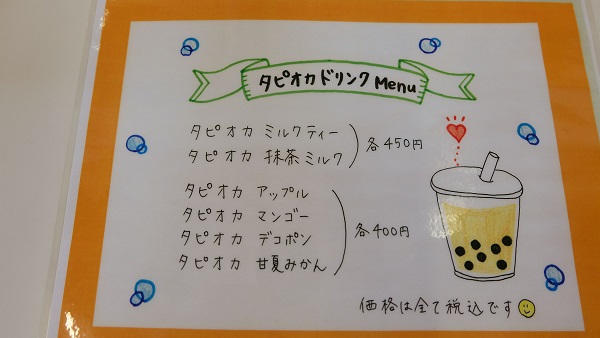 タピオカドリンクMenu
タピオカ ミルクティー
タピオカ 抹茶ミルク
各450円
タピオカ アップル
タピオカ マンゴー
タピオカ デコポン
タピオカ 甘夏みかん
各400円
価格は全て税込です